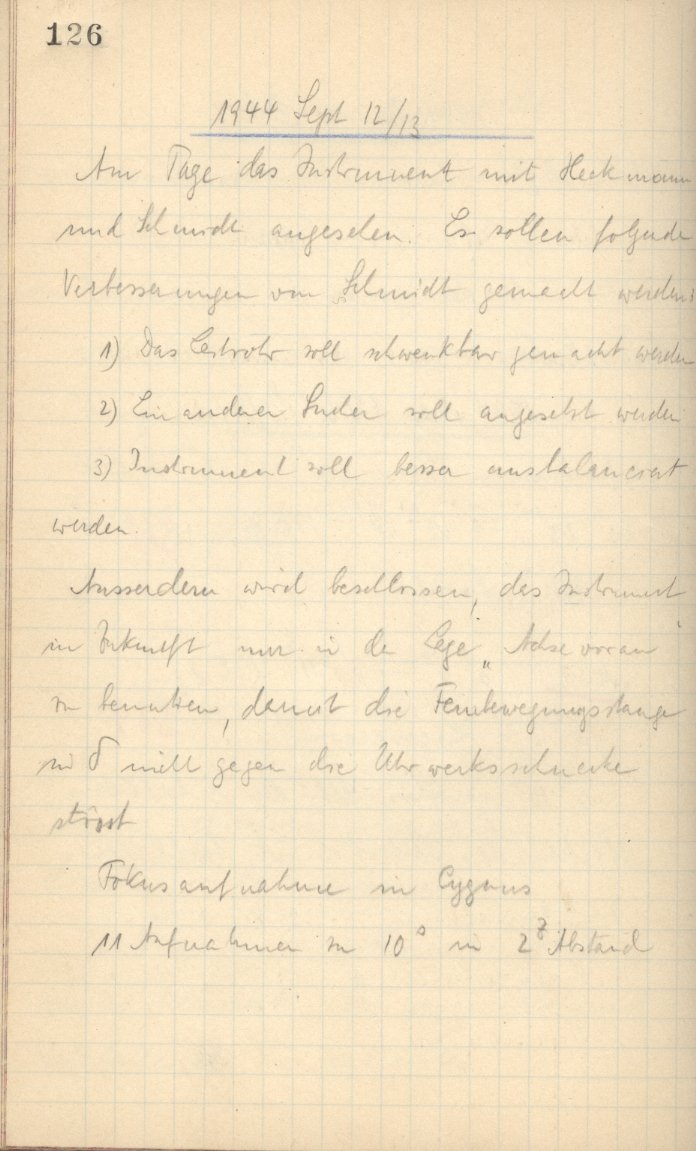 126
1944 Sept 12/13
Am Tage das Instrument mit Heckmann
und Schmidt angesehen. Es sollen folgende
Verbesserungen von Schmidt gemacht werden:
1) Das Leitrohr soll schwenkbar gemacht werden
2) Ein anderer Sucher soll angesetzt werden
3) Instrument soll besser ausbalanciert
werden.
Ausserdem wird beschlossen, das Instrument
in Zukunft nur in der Lage „Achse voran"
zu benutzen, damit die Feinbewegungsstange
in δ nicht gegen die Uhrwerksschnecke
stösst
Fokusaufnahme in Cygnus
11 Aufnahmen zu 10ˢ in 2ᶻ Abstand